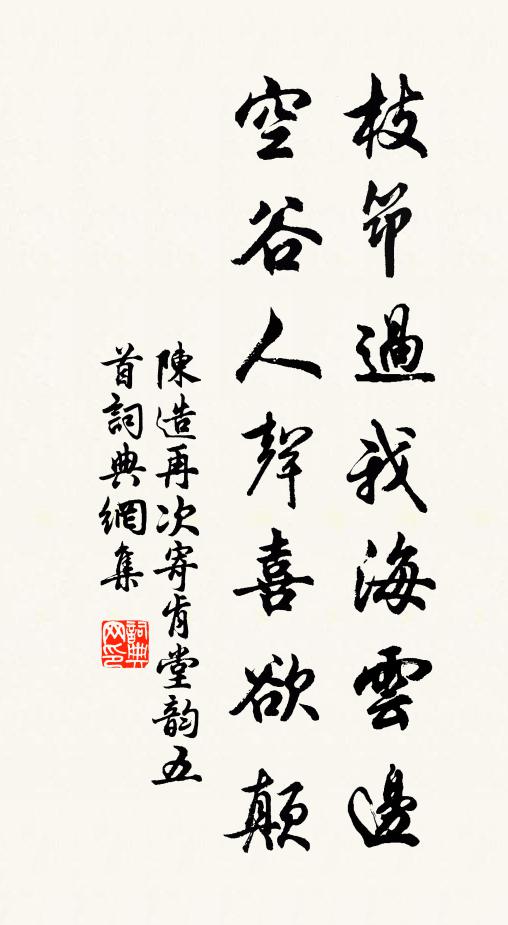 枝筇過我海雲邊
空谷人聲喜欲顛
陳造再次寄肯堂韵五
首詞典網集
詞典网印